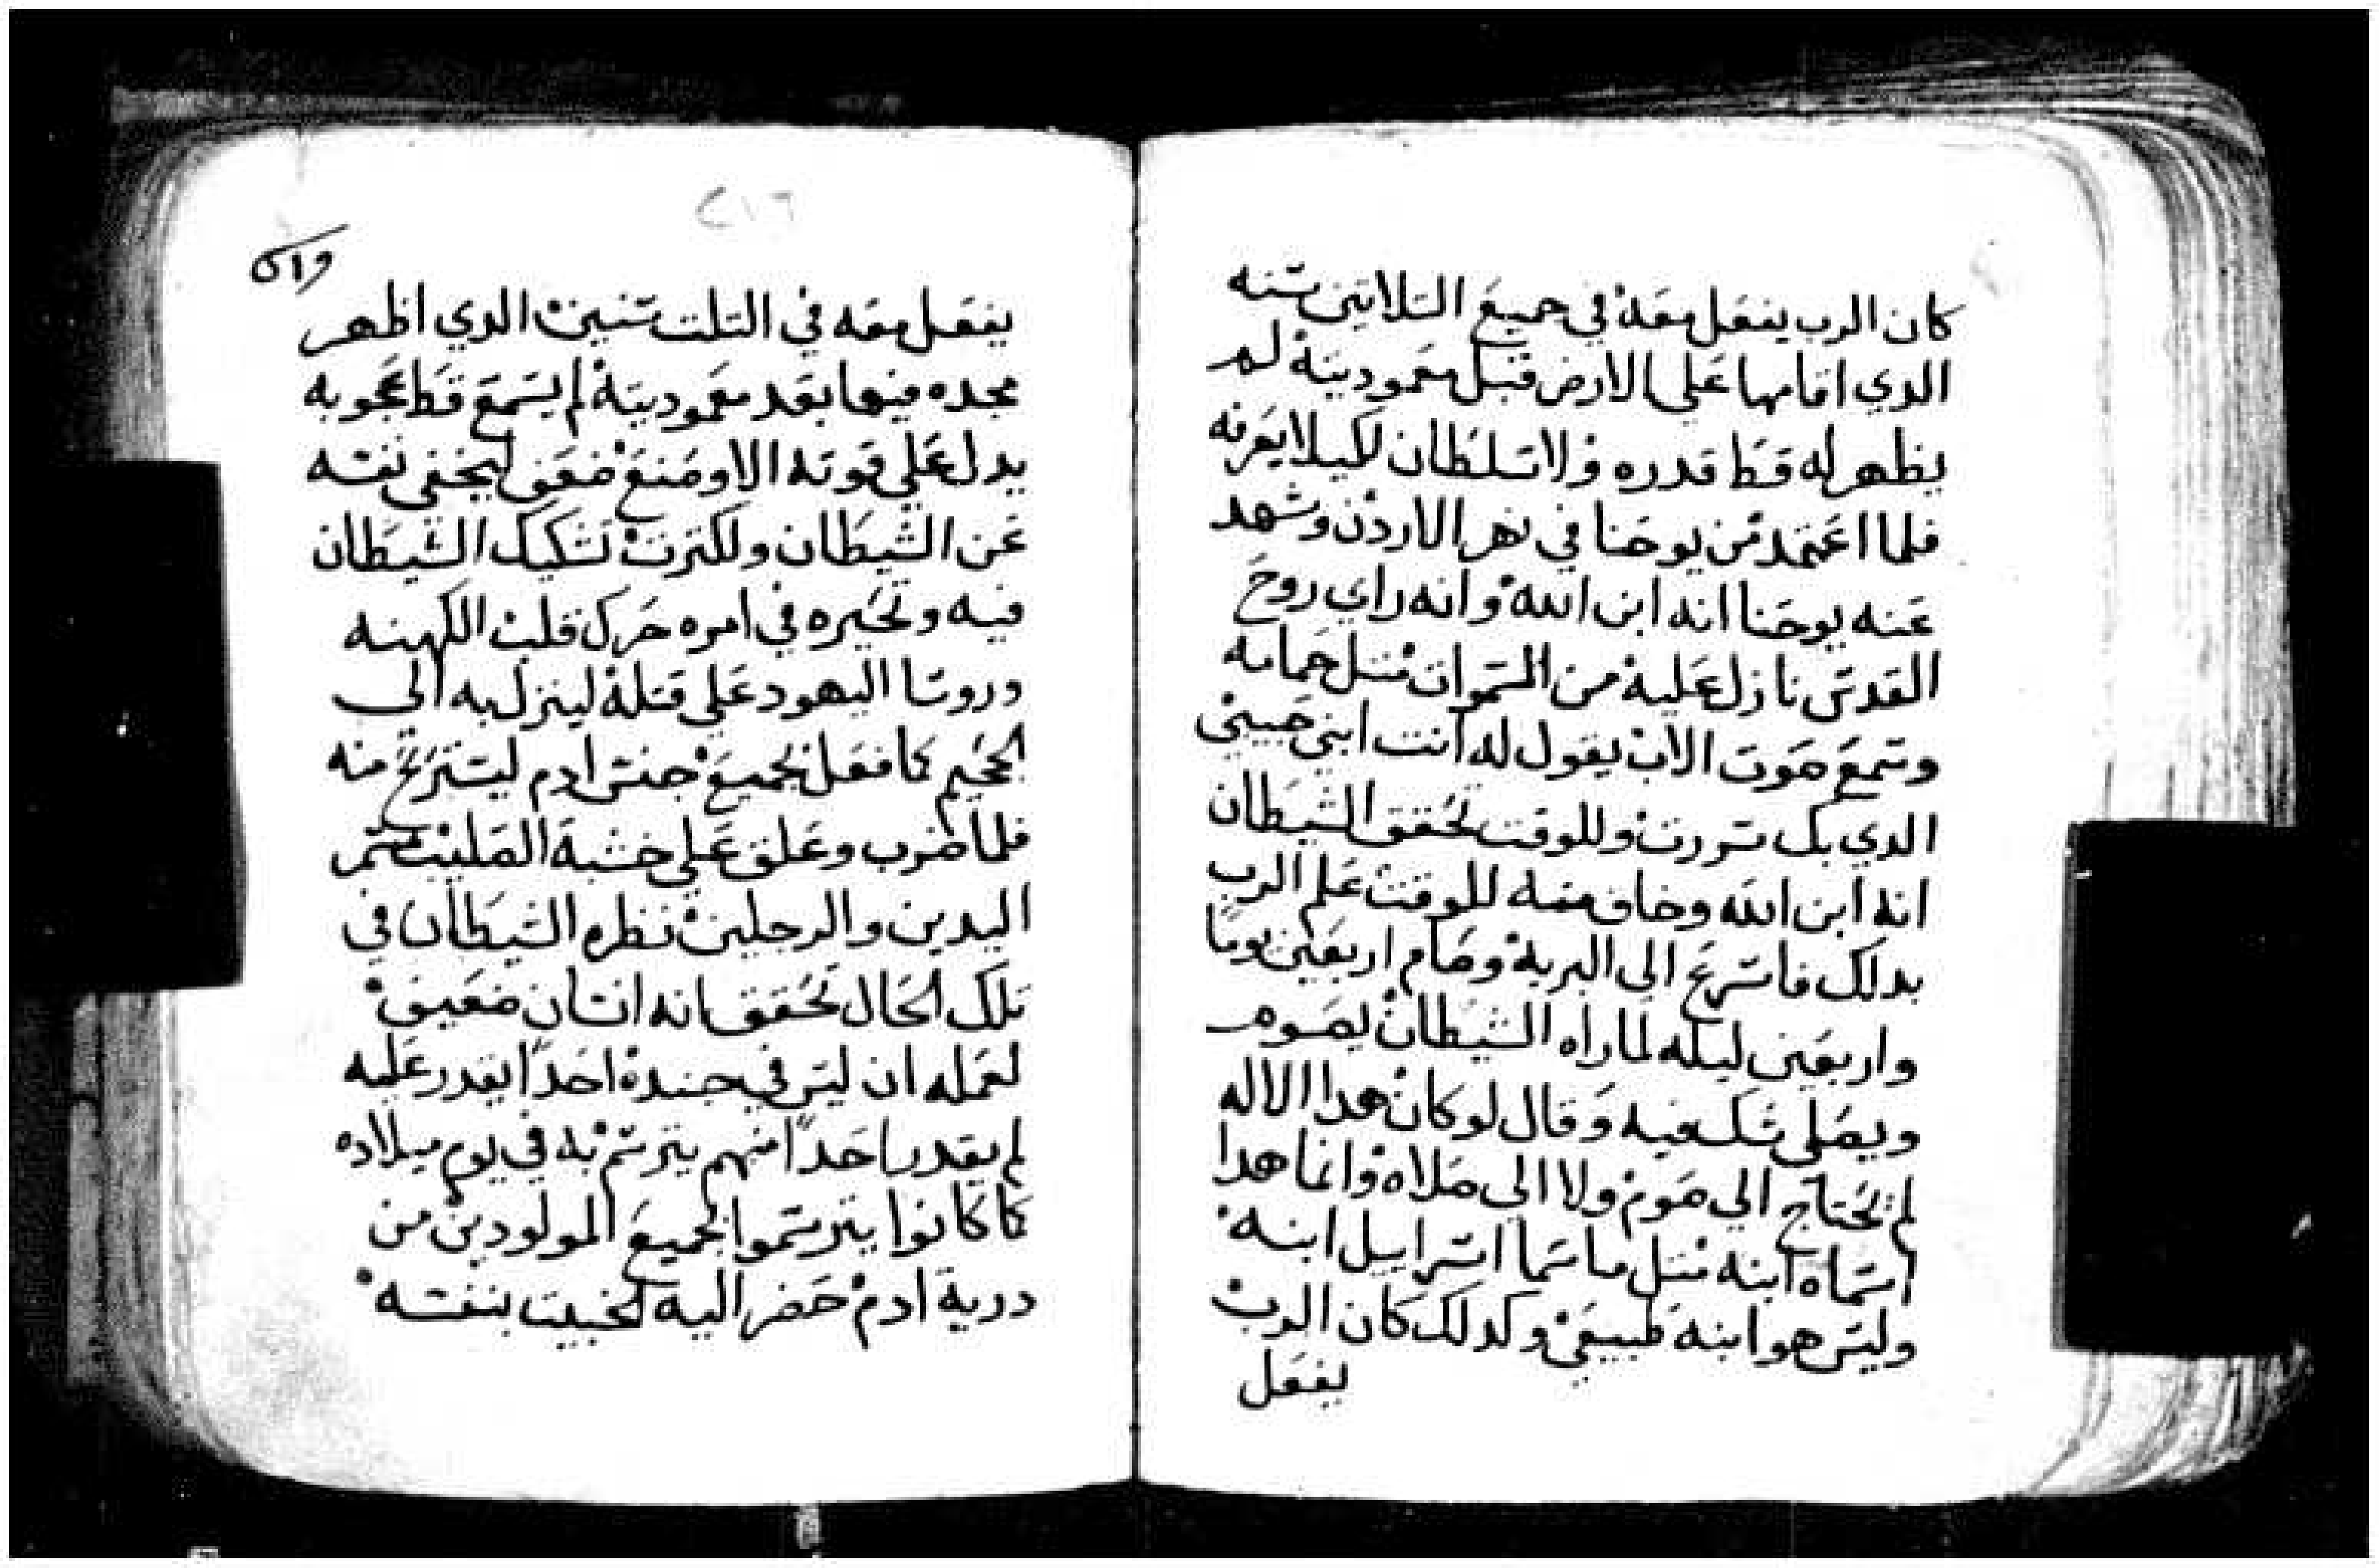 كان الرب يفعل معه في جميع التلاتين سنه
الدي اقامها علي الارض قبل معموديته لم
يظهر له قط قدره ولا سلطان لكيلا يعرفه
فلما اعتمد من يوحنا في نهر الاردن وشهد
عنه يوحنا انه ابن الله وانه راي روح
القدس نازل عليه من السموات متل حمامه
وسمع صوت الاب يقول له انت ابني حبيبي
الدي بك سررت وللوقت تحقق الشيطان
انه ابن الله وخاف منه للوقت علم الرب
بدلك فاسرع الي البرية وصام اربعين يوما
واربعين ليله لما راه الشيطان يصوم
ويصلي شك فيه وقال لو كان هدا الاله
لم يحتاج الي صوم ولا الي صلاه وانما هدا
اسماه ابنه متل ما سما اسراييل ابنه
وليس هو ابنه طبيعي وكدلك كان الرب
يفعل
٢١٦
يفعل معه في التلت سنين الدي اظهر
مجده فيها بعد معموديته لم يسمع قط عجوبه
يدل علي قوته الا وصنع ضعف ليخفي نفسه
عن الشيطان ولكترت تشكيك الشيطان
فيه وتحيره في امره حرك قلب الكهنه
وروسا اليهود علي قتله لينزل به الي
الجحيم كما فعل بجميع جنس ادم ليستريح منه
فلما ضرب وعلق علي خشبة الصليب مسمر
اليدين والرجلين نظره الشيطان في
تلك الحال تحقق انه انسان ضعيف
لعمله ان ليس في جنده احدا يقدر عليه
لم يقدر احدا منهم يترسم به في يوم ميلاده
كما كانوا يترسموا بجميع المولودين من
درية ادم حضر اليه الخبيت بنفسه